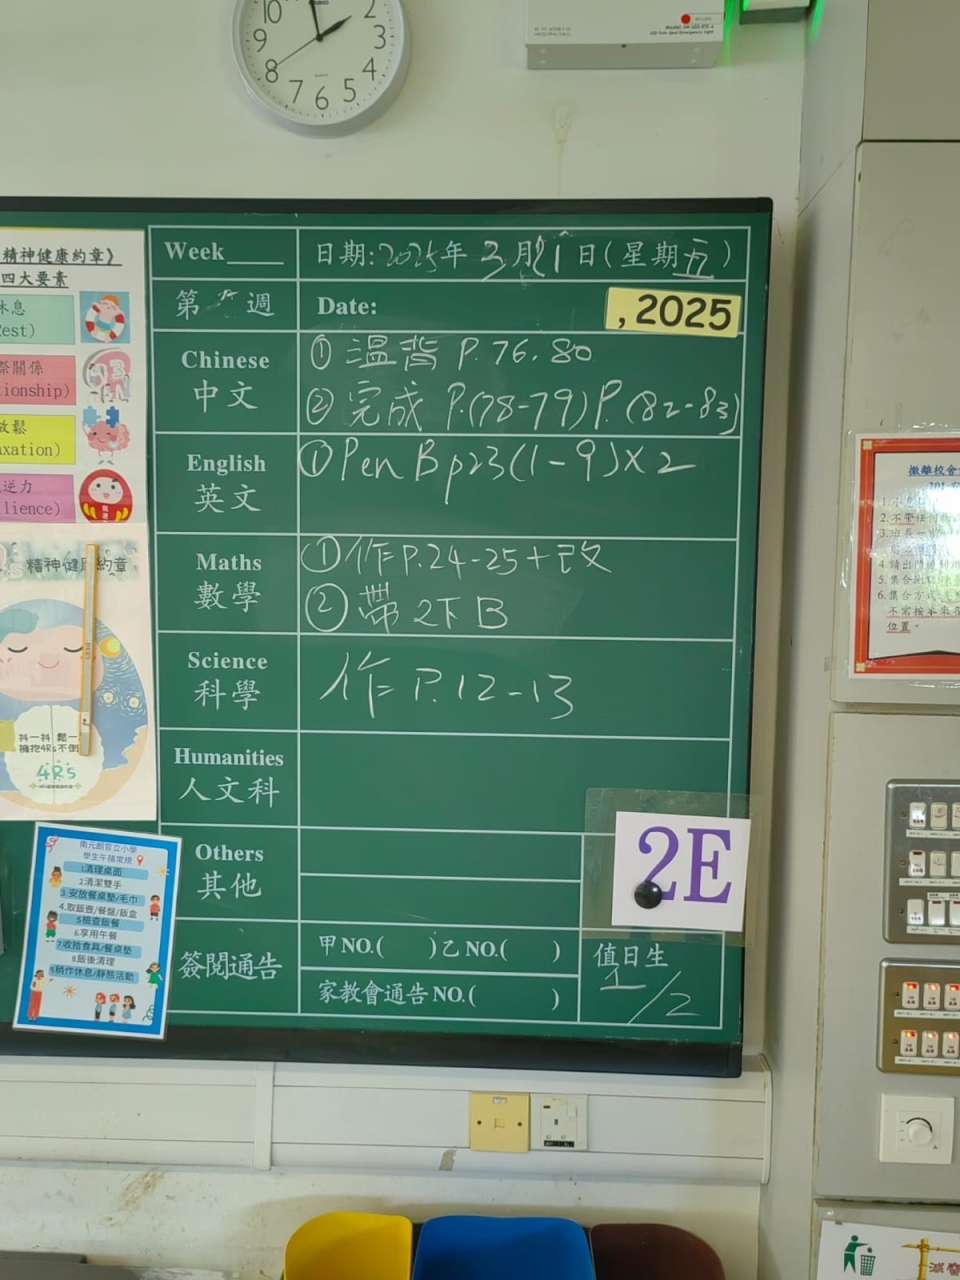 10
2
9
3
8
4
7
6
5
精神健康約章》
四大要素
休息
Rest)
際關係
tionship)
放鬆
axation)
逆力
ilience)
精神健 約章
抖一抖 鬆一
擁抱4Rs不倒
4Rs
Week
日期:2025年 3月21日(星期五)
第 週
Date:
, 2025
Chinese
中文
① 溫背 P. 76. 80
② 完成 P.(78-79) P. (82-83)
English
英文
① Pen B p23 (1-9)×2
Maths
數學
① 作P.24-25+改
② 帶 2下B
Science
科學
作 P. 12-13
Humanities
人文科
Others
其他
2E
簽閱通告
甲NO.( )乙NO.( )
家教會通告NO.( )
值日生
1/2
南元朗官立小學
學生午膳常規
1.清理桌面
2.清潔雙手
3.安放餐桌墊/毛巾
4.取飯壺/餐盤/飯盒
5.檢查飯餐
6.享用午餐
7.收拾食具/餐桌墊
8.飯後清理
9.稍作休息/靜態活動
撤離校舍
2.不帶任何
4.請出門
5.集合地點
6.集合方式
位置。